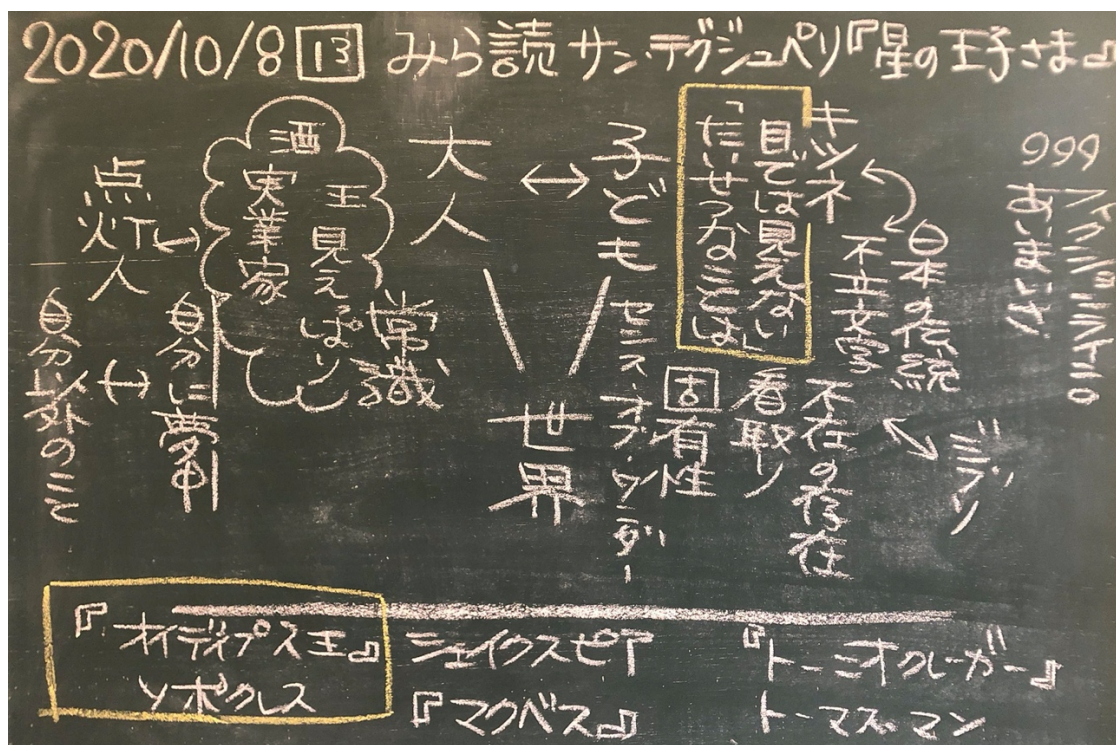 2020/10/8 13 みら読 サン・テグジュペリ『星の王子さま』
999
あいまいさ
日本の伝統
不立文字
ジブリ
キツネ
「たいせつなことは
目では見えない」
不在の存在
看取り
固有性
子ども
センス・オブ・ワンダー
↔
大人
世界
常識
酒
王
見えっぱり
実業家
点灯人
自分に夢中
↔
自分以外のこと
『オイディプス王』
ソポクレス
シェイクスピア
『マクベス』
『トーニオクレーガー』
トーマス・マン